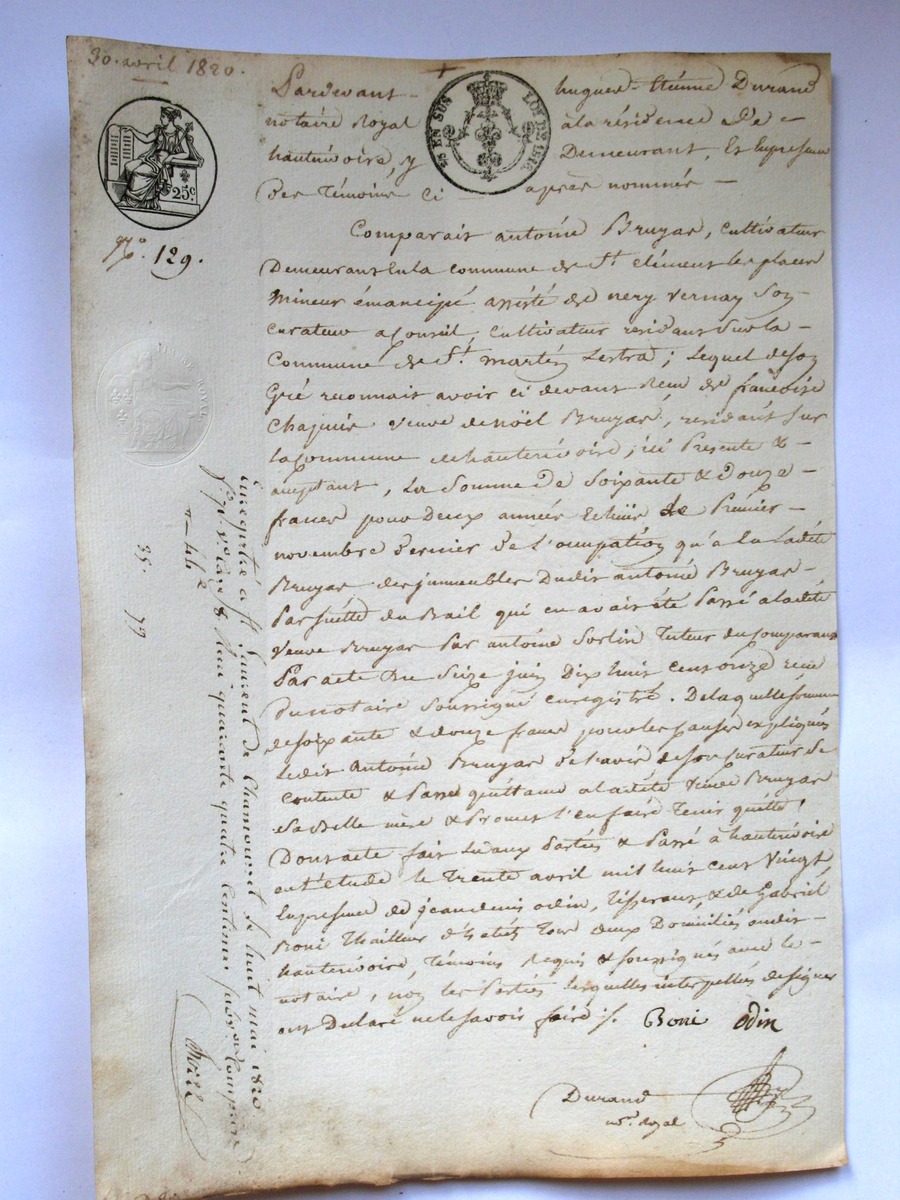 30. avril 1820.
Pardevant hugues-Etiénne Durand
notaire Royal à la résidence De
hauterivoire, y Demeurant, Et En presence
Des Témoins Ci après nommés
25 EN SUS
LOI DE 1816
25 c
No. 129.
Comparait antoine Bruyas, Cultivateur
Demeurant En la commune de St. clément les places
Mineur émancipé assisté de nery Vernay Son
Curateur a Conseil, Cultivateur résidant Sur la
Commune de St. martin Lestra; Lequel de son
Gré reconnait avoir ci devant Reçu de françoise
Chapuis Veuve de noël Bruyas, résidant Sur
la Commune de hauterivoire, ici Présente &
acceptant, La Somme De Soixante & Douze
francs pour Deux années Echues le Premier
novembre Dernier De l'occupation qu'a La dite
Bruyas des immeubles Dudit antoine Bruyas
Par Suitte du Bail qui en avait été Passé à la dite
Veuve Bruyas Par antoine Sorlin Tuteur du Comparant
Par acte Du Seize juin Dix huit cent onze reçu
du notaire Soussigné enregistré. De laquelle Somme
de soixante & douze francs pour les causes expliquées
Ledit Antoine Bruyas De l'avis de son Curateur Se
Contente & Passe quittance a la dite Veuve Bruyas
Sa Belle mère & Promet l'en faire Tenir quitte;
Dont acte fait Lu aux Parties & Passé à hauterivoire
en l'étude le Trente avril mil huit cent Vingt,
En presence de jean denis odin, Tisserant, & de Gabriel
Boni Thailleur d'habits Tous deux Domiciliés audit
hauterivoire, Témoins Requis & soussignés avec le
notaire, non les Parties lesquelles interpellées de signer
ont Déclaré ne le savoir faire ./. Boni odin
Durand
nre. royal
Enregistré à St. Laurent de Chamousset le huit mai 1820
quarante quatre centimes
44c
35. 79